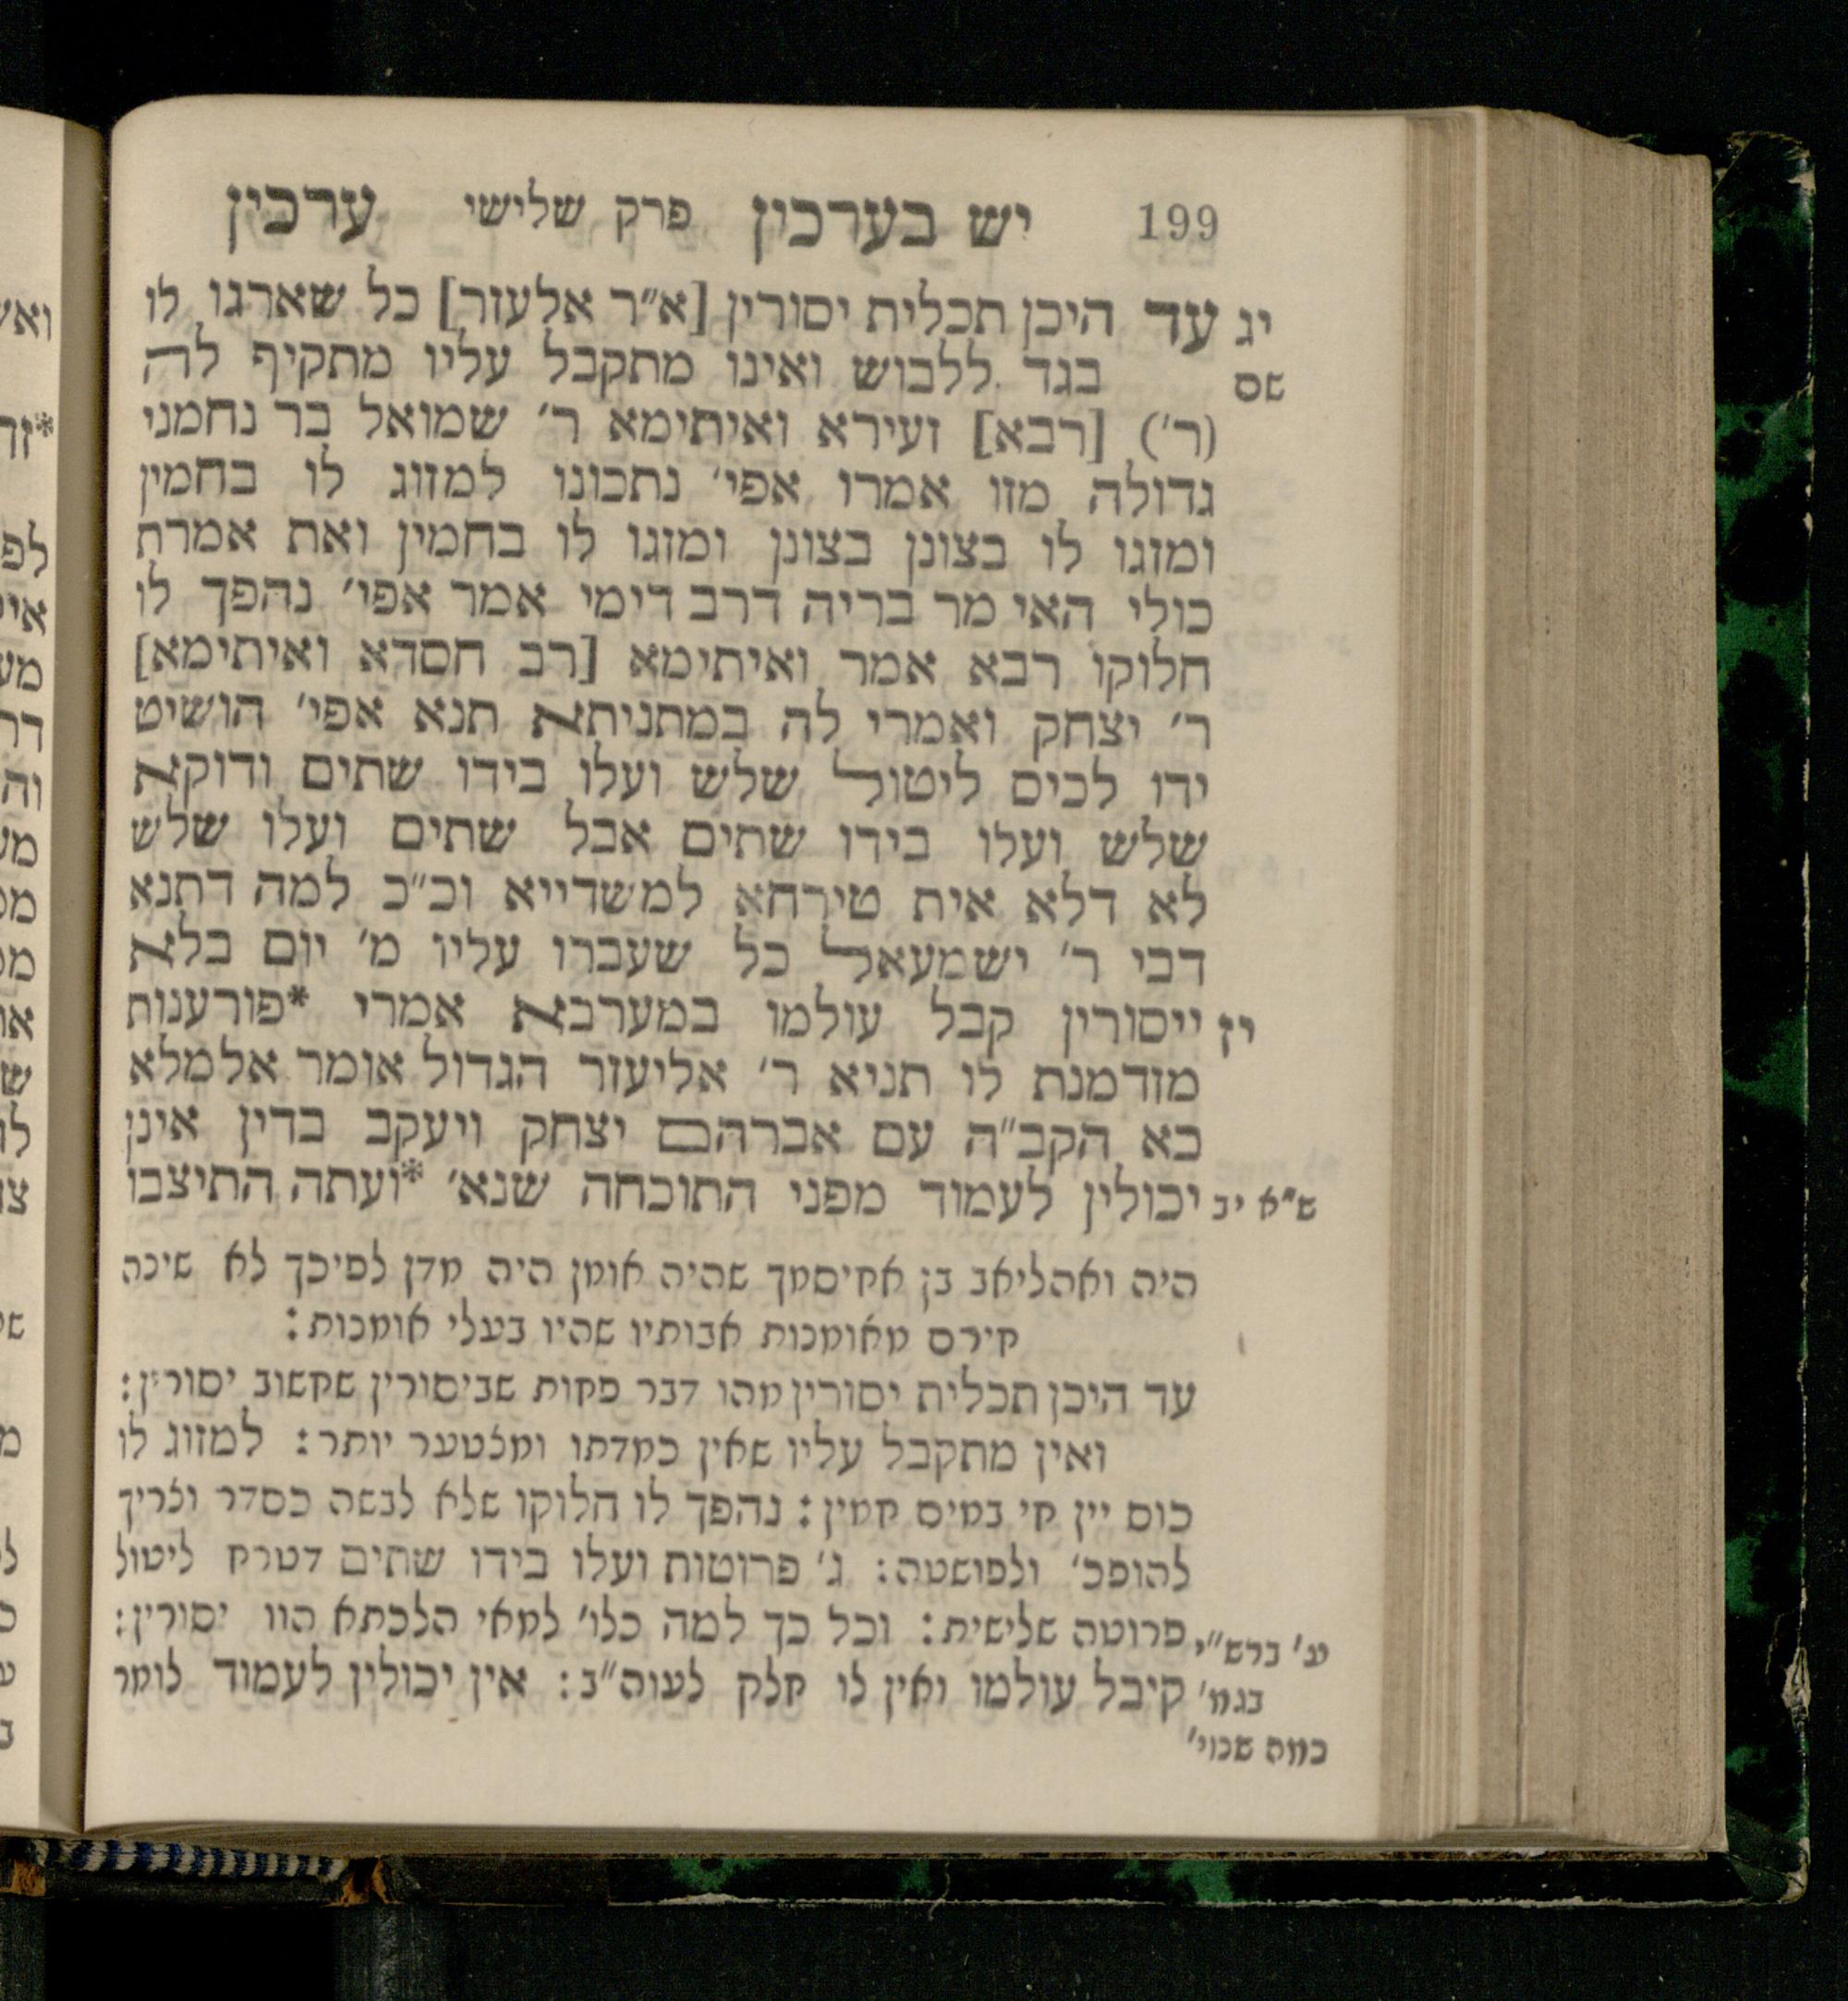 199 יש בערכין פרק שלישי ערכין
יג עד היכן תכלית יסורין [א״ר אלעזר] כל שארגו לו
שם בגד ללבוש ואינו מתקבל עליו מתקיף לה
(ר׳) [רבא] זעירא ואיתימא ר׳ שמואל בר נחמני
גדולה מזו אמרו אפי׳ נתכונו למזוג לו בחמין
ומזגו לו בצונן בצונן ומזגו לו בחמין ואת אמרת
כולי האי מר בריה דרב דימי אמר אפי׳ נהפך לו
חלוקו רבא אמר ואיתימא [רב חסדא ואיתימא]
ר׳ יצחק ואמרי לה במתניתא תנא אפי׳ הושיט
ידו לכים ליטול שלש ועלו בידו שתים ודוקא
שלש ועלו בידו שתים אבל שתים ועלו שלש
לא דלא אית טירחא למשדייא וכ״כ למה דתנא
דבי ר׳ ישמעאל כל שעברו עליו מ׳ יום בלא
יז ייסורין קבל עולמו במערבא אמרי *פורענות
מזדמנת לו תניא ר׳ אליעזר הגדול אומר אלמלא
בא הקב״ה עם אברהם יצחק ויעקב בדין אינן
ש״א יב יכולין לעמוד מפני התוכחה שנא׳ *ועתה התיצבו
היה ואהליאב בן אחיסמך שהיה אומן היה מדן לפיכך לא שינה
חירם מאומנות אבותיו שהיו בעלי אומנות:
עד היכן תכלית יסורין מהו דבר פחות שביסורין שחשוב יסורין:
ואין מתקבל עליו שאין כמדתו ומצטער יותר: למזוג לו
כוס יין חי במים חמין: נהפך לו חלוקו שלא לבשה כסדר וצריך
להופכ׳ ולפושטה: ג׳ פרוטות ועלו בידו שתים דטרח ליטול
ע׳ ברש״י פרוטה שלישית: וכל כך למה כלו׳ למאי הלכתא הוו יסורין:
בגמ׳ קיבל עולמו ואין לו חלק לעוה״ב: אין יכולין לעמוד לומר